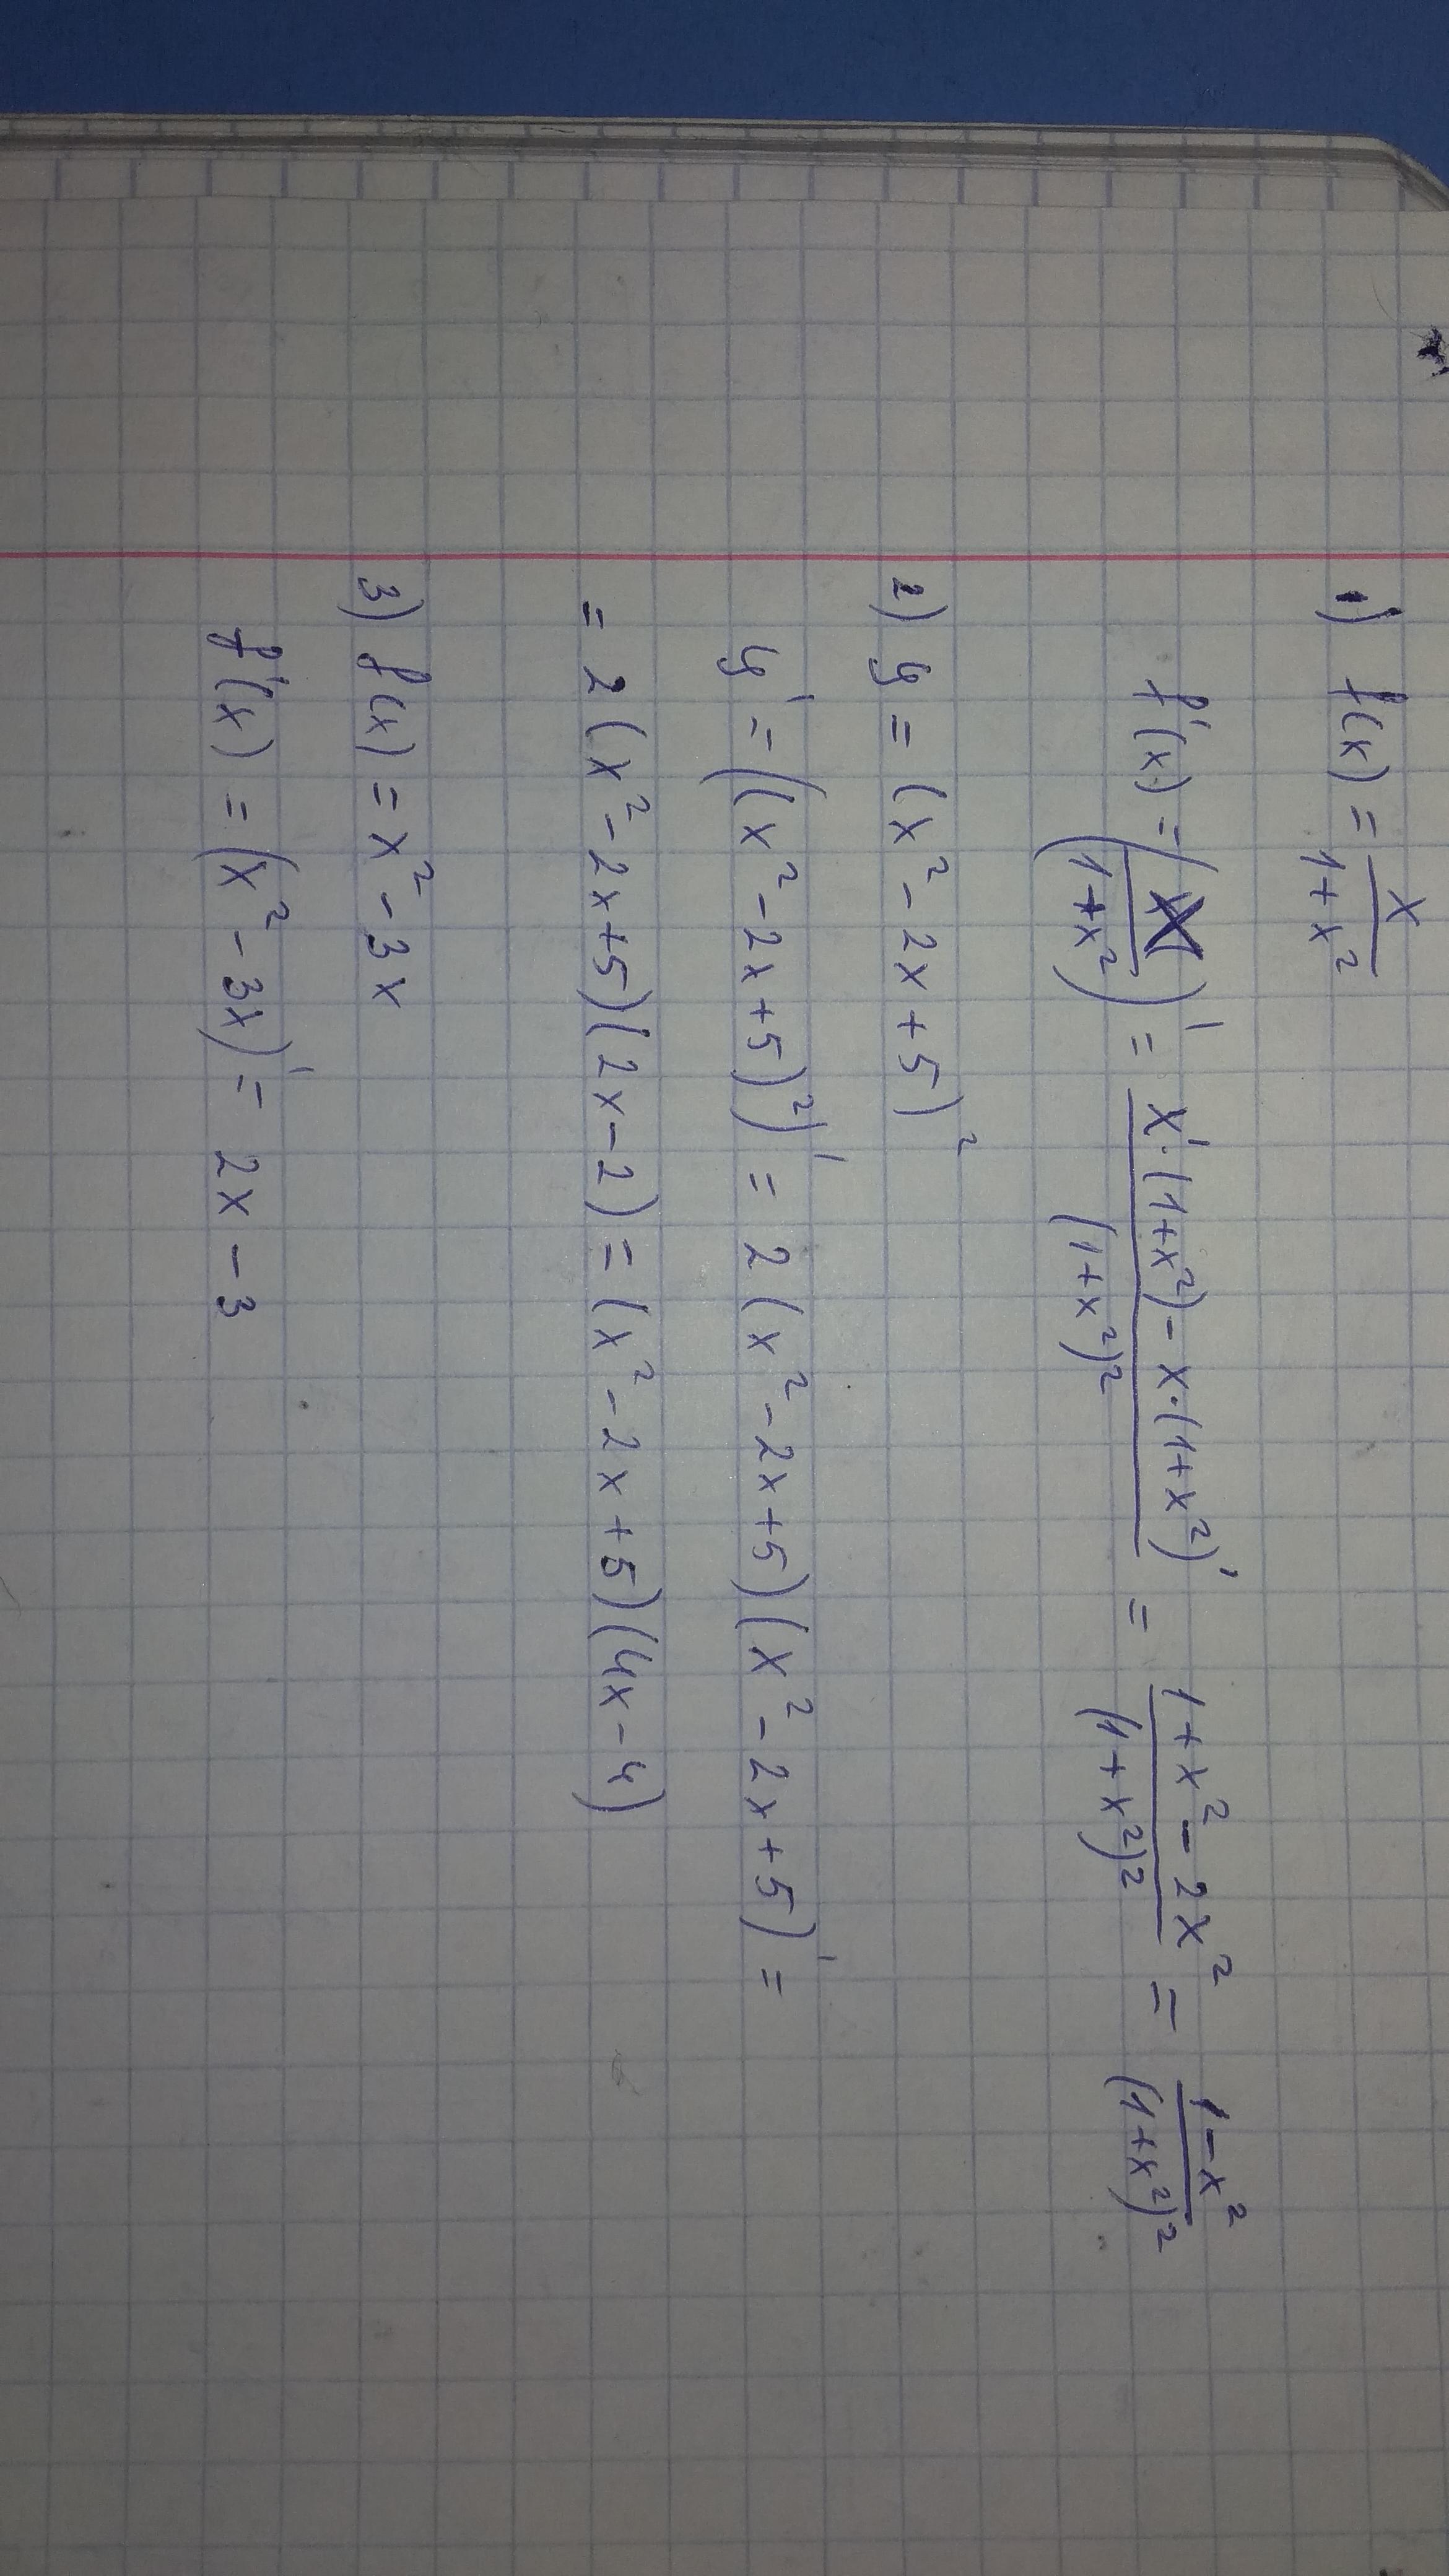 1) f(x) = x/(1+x²)
f'(x) = (x/(1+x²))' = (x'·(1+x²) - x·(1+x²)')/(1+x²)² = (1+x²-2x²)/(1+x²)² = (1-x²)/(1+x²)²
2) y = (x²-2x+5)²
y' = ((x²-2x+5)²)' = 2(x²-2x+5)(x²-2x+5)' =
= 2(x²-2x+5)(2x-2) = (x²-2x+5)(4x-4)
3) f(x) = x²-3x
f'(x) = (x²-3x)' = 2x-3